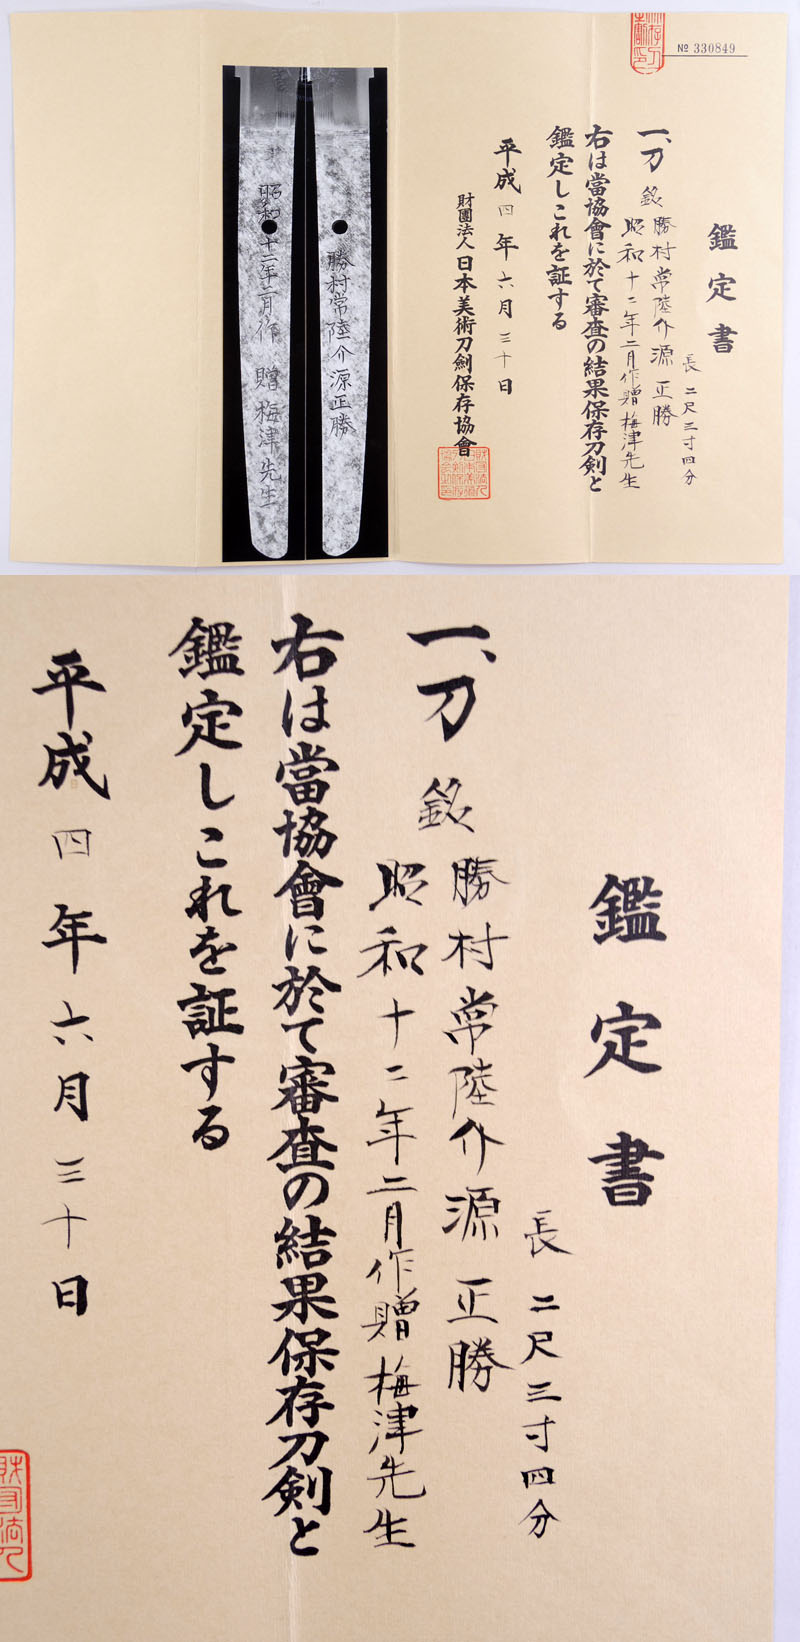 № 330849
鑑定書
長 二尺三寸四分
一、刀 銘 勝村常陸介源正勝
昭和十二年二月作贈梅津先生
右は當協會に於て審査の結果保存刀剣と
鑑定しこれを証する
平成四年六月三十日
財團法人日本美術刀剣保存協會
勝村常陸介源正勝
昭和十二年二月作 贈 梅津先生
鑑定書
長 二尺三寸四分
一、刀 銘 勝村常陸介源正勝
昭和十二年二月作贈梅津先生
右は當協會に於て審査の結果保存刀剣と
鑑定しこれを証する
平成四年六月三十日